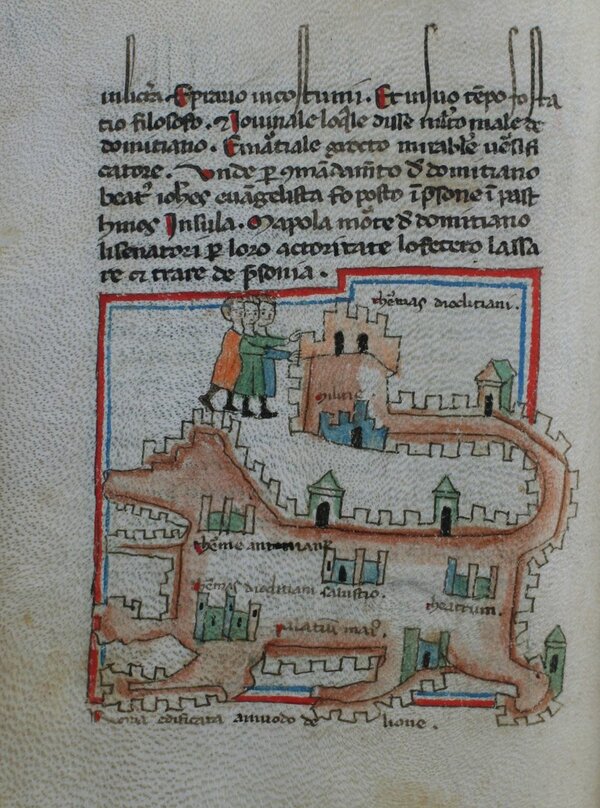 inlicta . Eprauo incostumi . Et insuo tēpo fo sta
tio filosofo . & Jouinale loq̄le disse mlto male de
domitiano . Emartiale grecto mirabl'e uersifi
catore . Unde per 9mādamīto d domitiano
beat' ioħes euāgelista fo posto īpsone ī past
hmos Insula . Mapola mōte d domitiano
lisenatori per loro actoritate lofetero lassa
re et trare de psonia .
thermas dioclitiani .
militie
therme antoniane
thermas dioclitiani salustio .
theatrum .
palatiū mai' .
Roma edificata ammodo de lione .